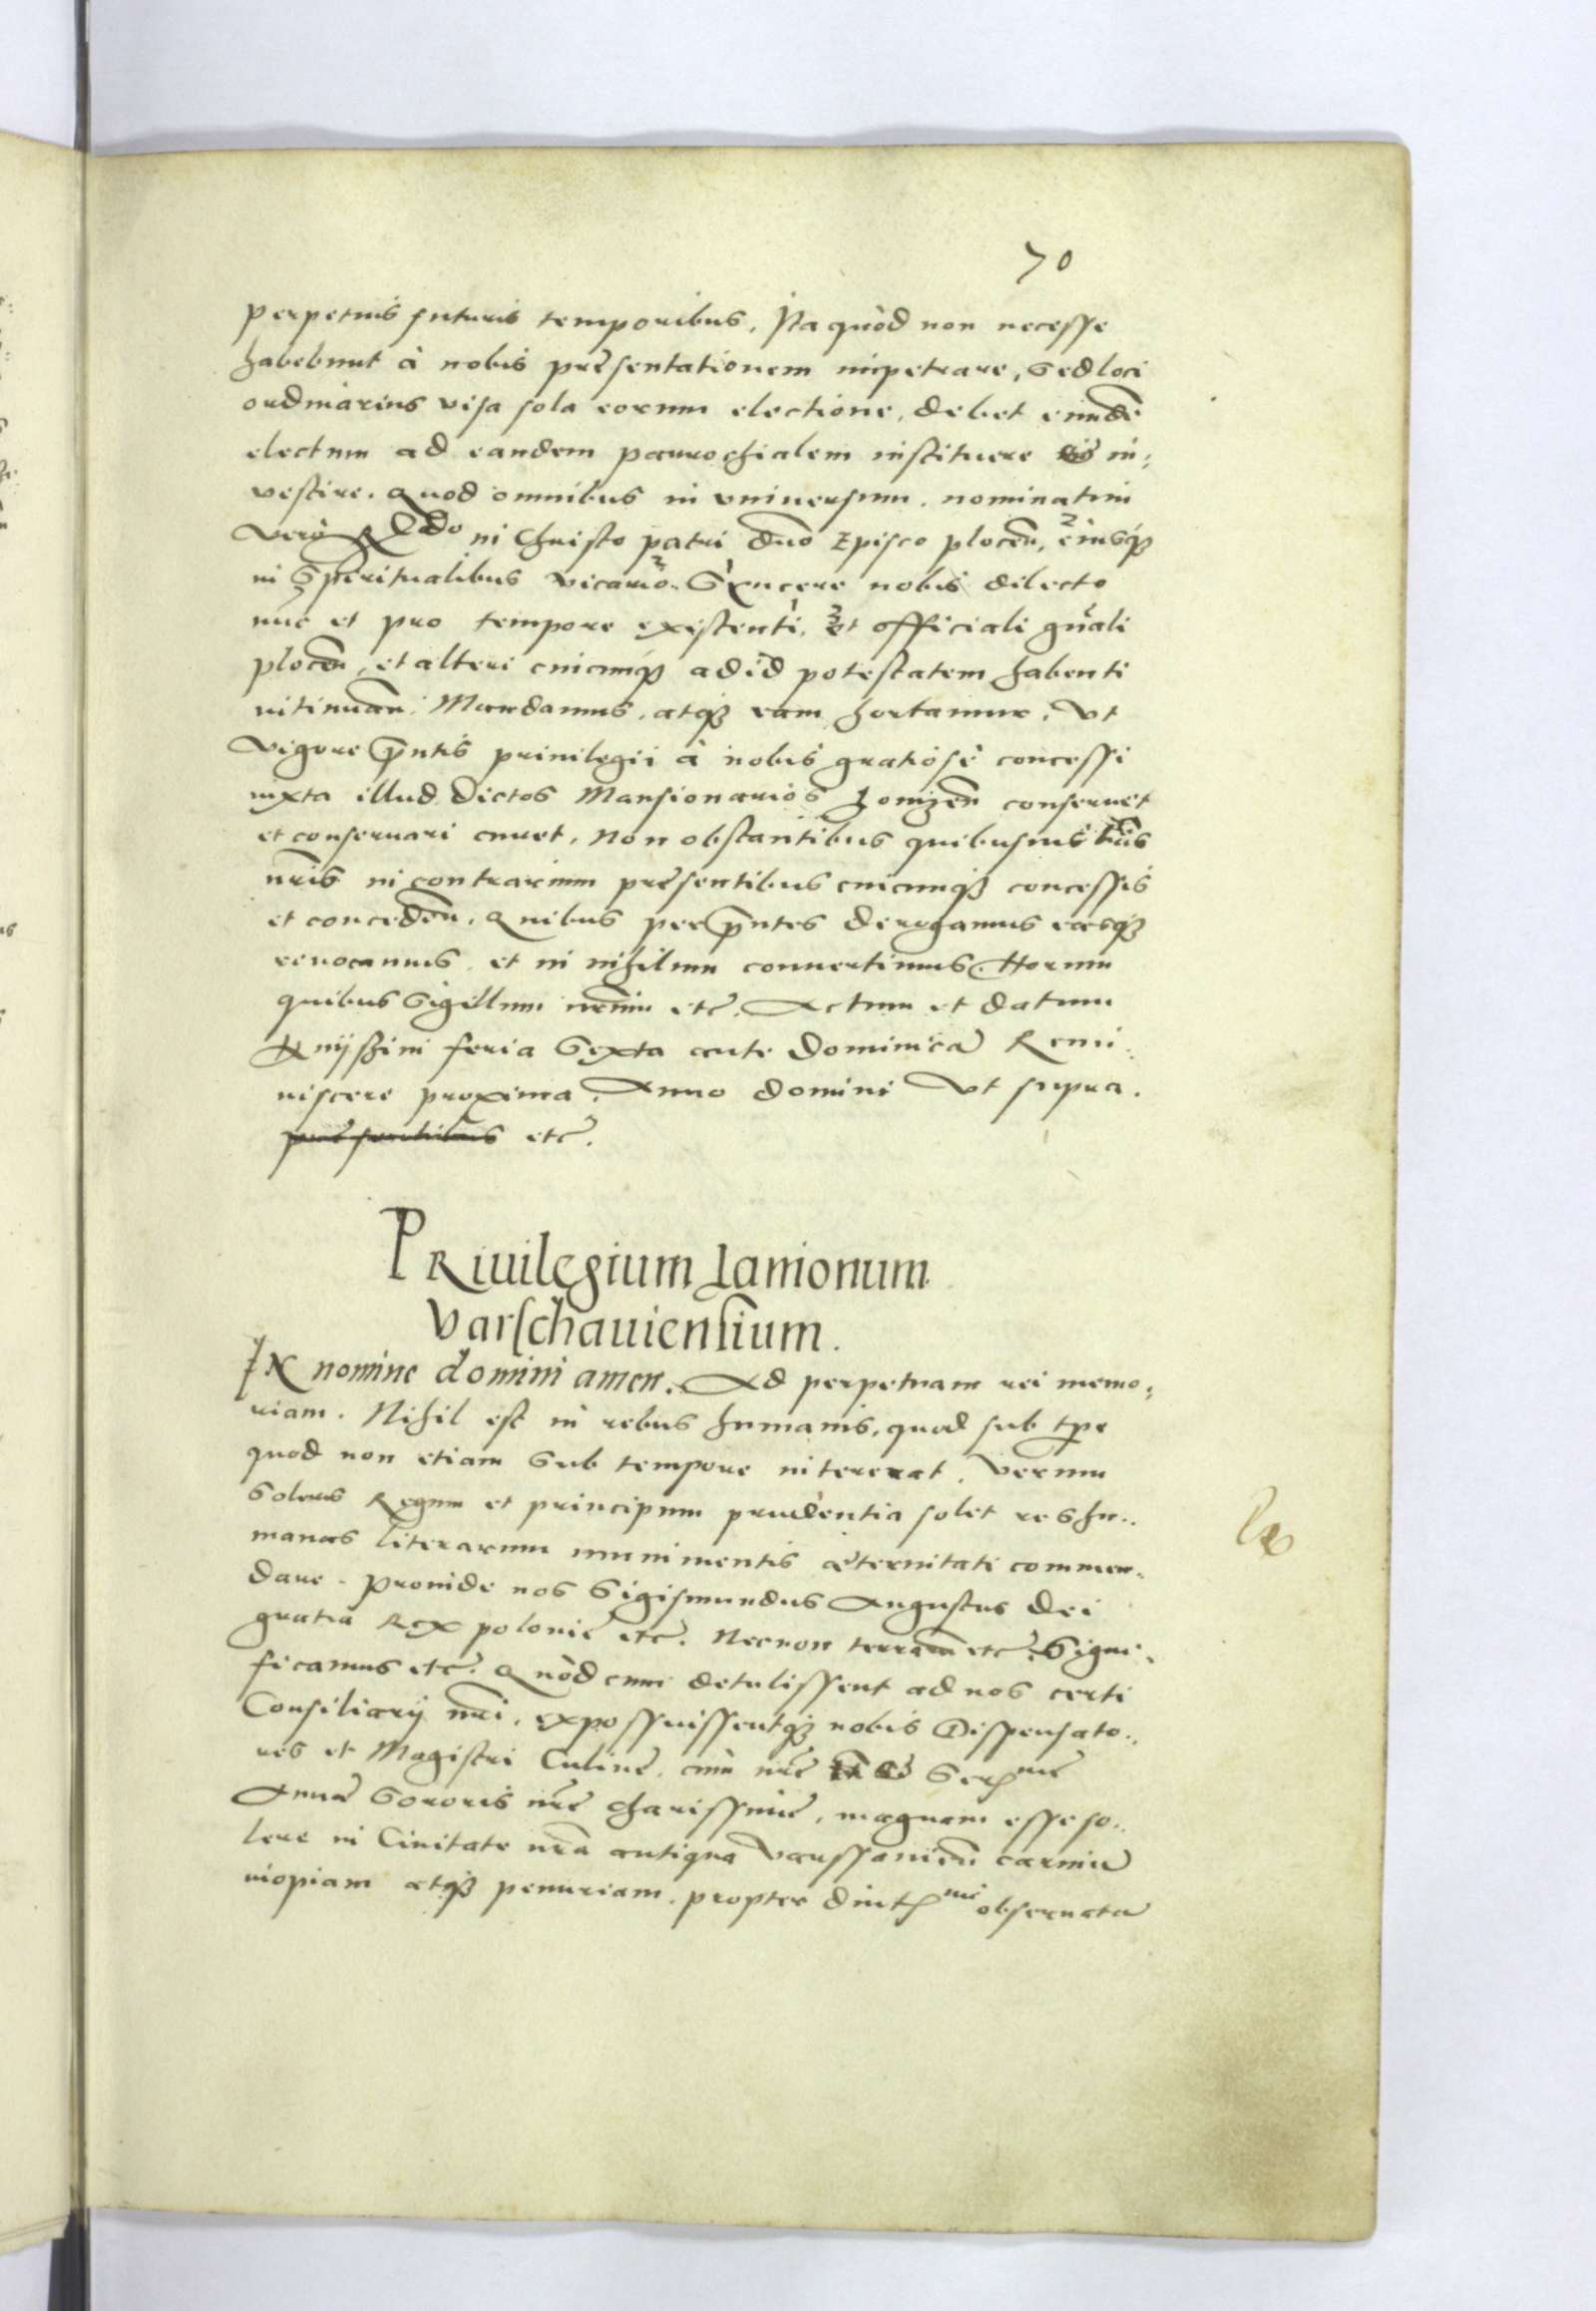 70
perpetuis futuris temporibus. Ita quòd non necesse
habebunt à nobis presentationem impetrare, sed loci
ordinarius visa sola eorum electione, debet eiusdē
electum ad eandem parrochialem instituere et in:
vestire. Quod omnibus in vniuersum. nominatim
verò Rdo in Christo patri dno Episco plocēn, eiusq3
in Spiritualibus vicario. Syncere nobis dilecto
nūc et pro tempore existenti, et officiali gnāli
plocēn, et alteri cuicumq3 ad id potestatem habenti
Mandamus, atq3 eam hortamur, vt
vigore pntis priuilegii à nobis gratiosè concessi
iuxta illud dictos Mansionarios Lomzen conseruet
et conseruari curet, Non obstantibus quibusuis lris
nris in contrarium presentibus cuicumq3 concessis
et conceden. Quibus per pntes derogamus easq3
reuocamus et in nihilum conuertimus. Horum
quibus Sigillum nrum etc. Actum et datum
Knijszini feria Sexta ante Dominica Remi:
niscere proxima, Anno domini vt supra.
presentibus etc.
PRiuilegium Lanionum
Varschauiensium.
IN nomine domini amen. Ad perpetuam rei memo:
riam. Nihil est in rebus humanis, quod sub tpe
quod non etiam Sub tempore intereat. Verum
Solers Regum et principum prudentia solet res hu:
manas literarum munimentis æternitati commen:
dare. Proinde nos Sigismundus Augustus Dei
gratia Rex polonie etc. Necnon terrarū etc. Signi:
ficamus etc. Quòd cum detulissent ad nos certi
Consiliarij nri, expossuissentq3 nobis Dispensato:
res et Magistri Culine, cùm nre Serme
Anne Sororis nre charissime, magnam esse so:
lere in Ciuitate nra antiqua Varssauien carniū
inopiam atq3 penuriam. propter obseruata